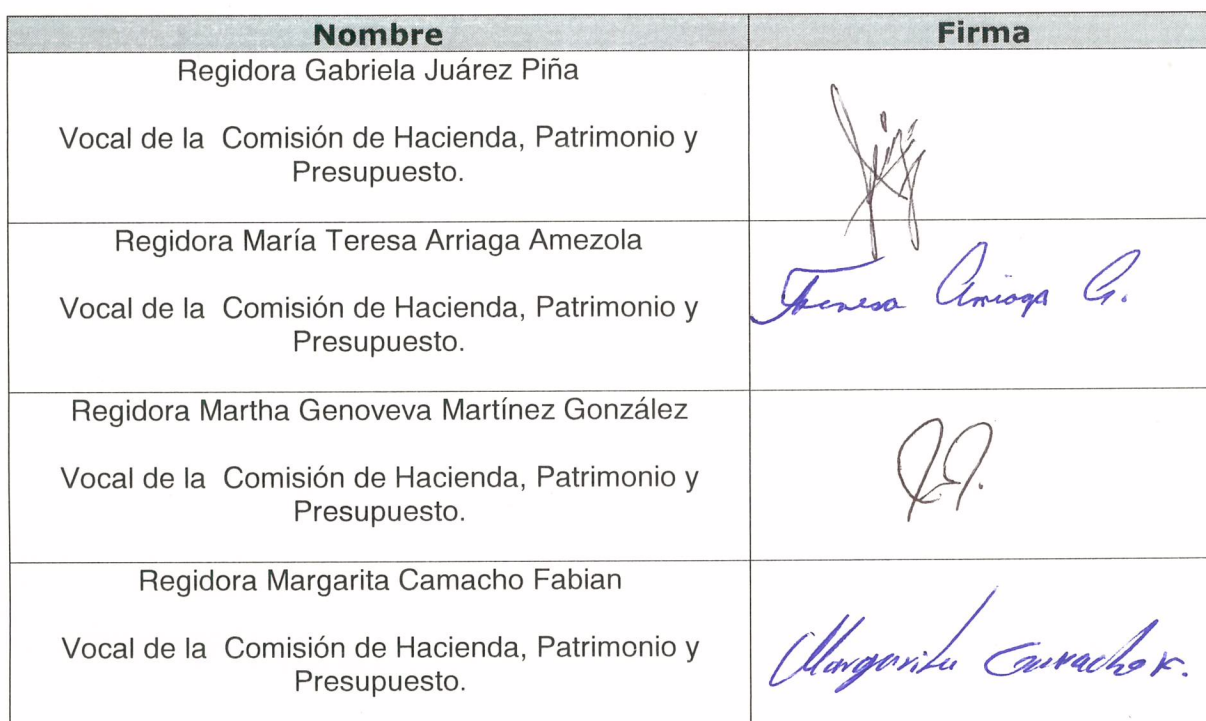 Nombre Firma
Regidora Gabriela Juárez Piña
Vocal de la Comisión de Hacienda, Patrimonio y
Presupuesto.
Regidora María Teresa Arriaga Amezola
Vocal de la Comisión de Hacienda, Patrimonio y
Presupuesto.
Regidora Martha Genoveva Martínez González
Vocal de la Comisión de Hacienda, Patrimonio y
Presupuesto.
Regidora Margarita Camacho Fabian
Vocal de la Comisión de Hacienda, Patrimonio y
Presupuesto.
Margarita Camacho F.